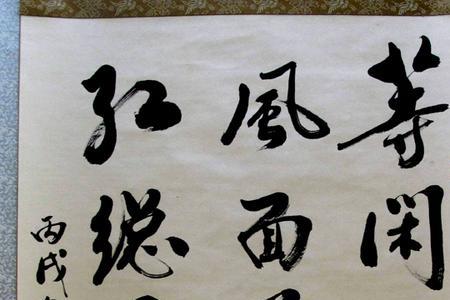 等閑
風面
紅總
丙戌